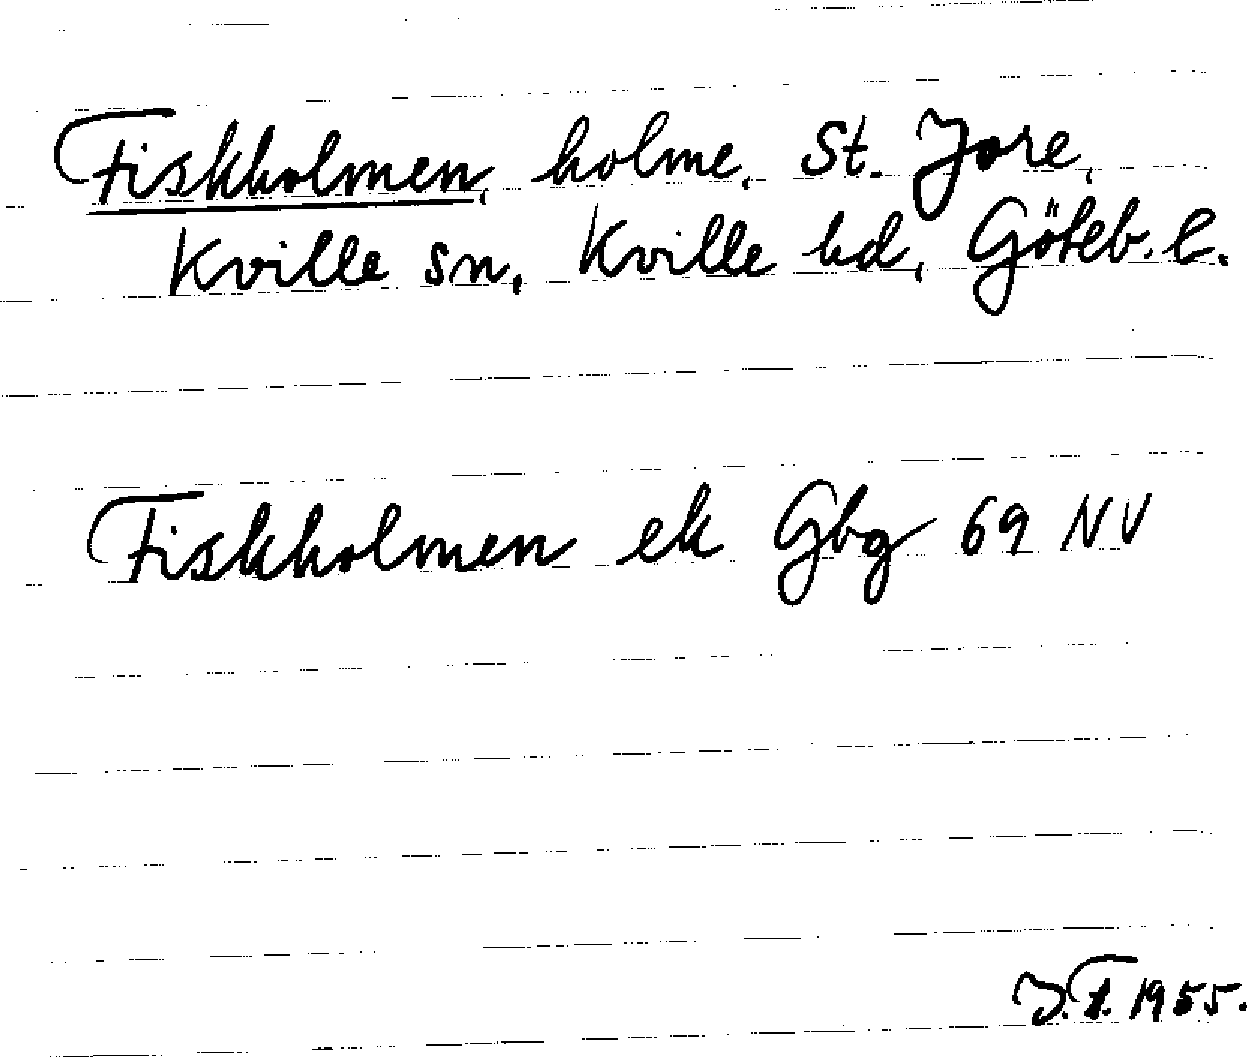 Fiskholmen, holme, St. Jore,
Kville sn, Kville hd, Göteb. l.
Fiskholmen ek Gbg 69 NV
J.F. 1955.